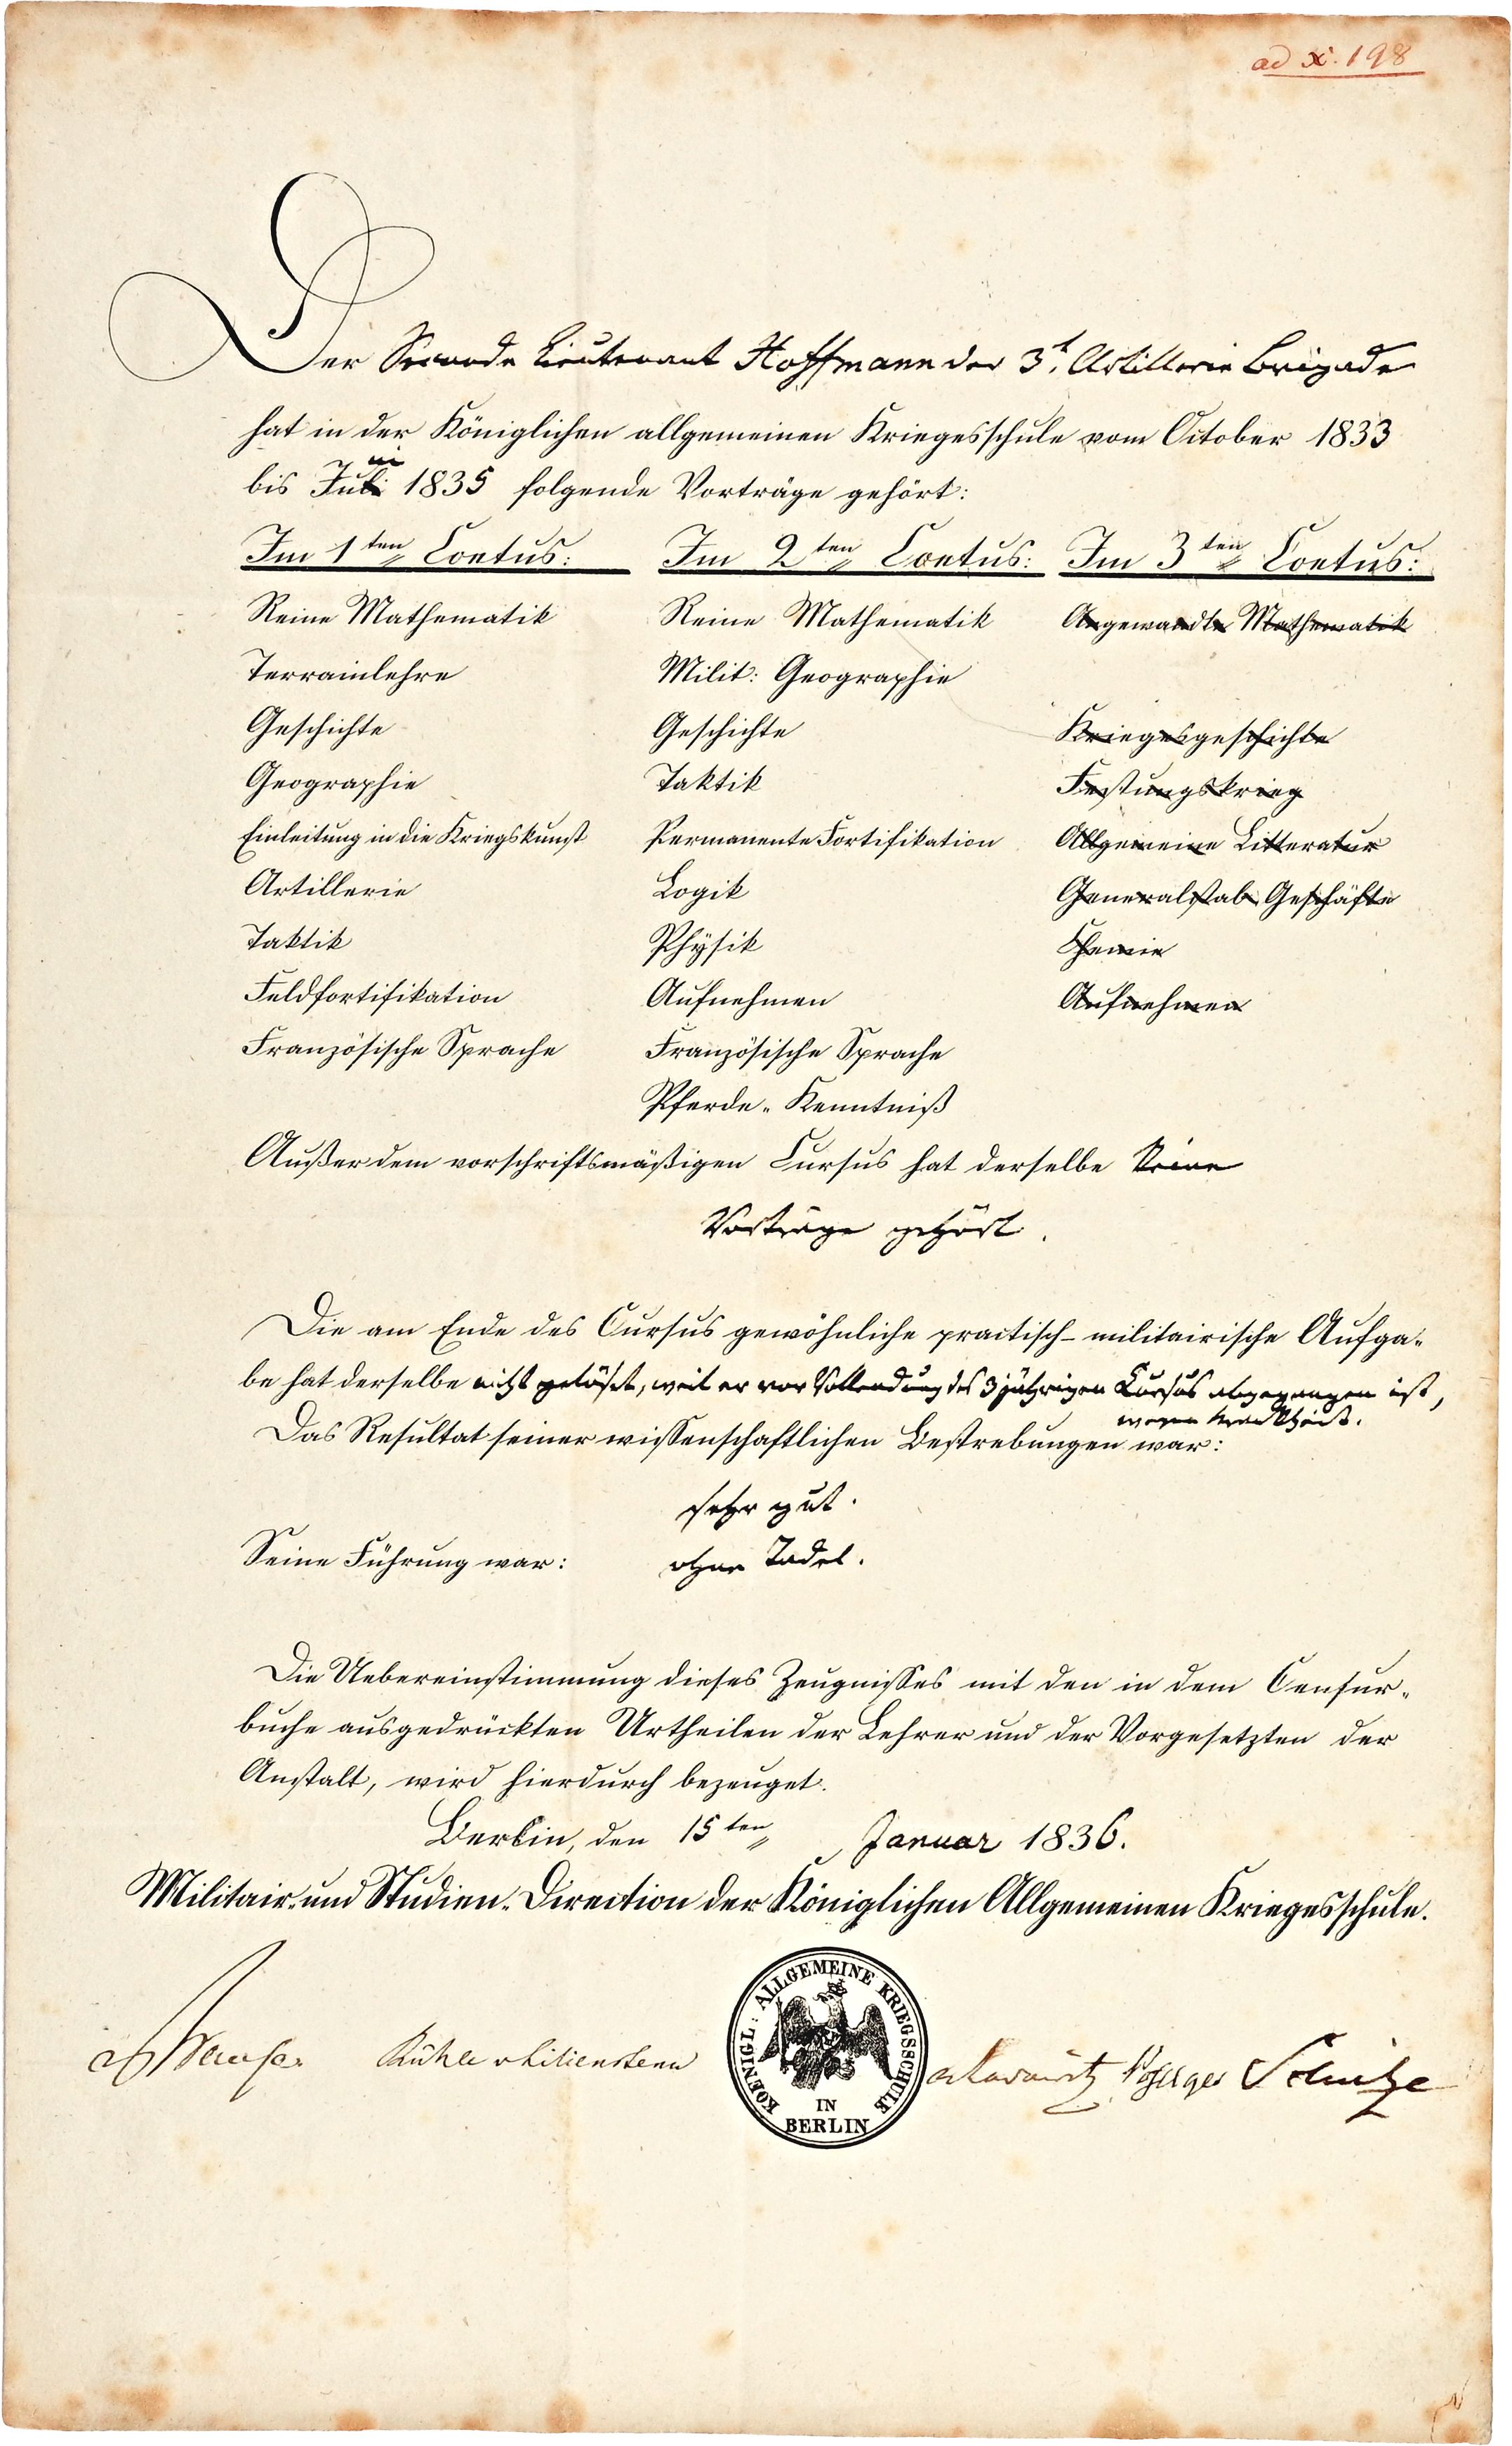 ad N. 198
Der Seconde Lieutenant Hoffmann der 3t. Artillerie Brigade
hat in der Königlichen allgemeinen Kriegesschule vom October 1833
bis Juni 1835 folgende Vorträge gehört:
Im 1ten Coetus: Im 2ten Coetus: Im 3ten Coetus:
Reine Mathematik Reine Mathematik Angewandte Mathematik
Terrainlehre Milit: Geographie
Geschichte Geschichte Kriegesgeschichte
Geographie Taktik Festungskrieg
Einleitung in die Kriegskunst Permanente Fortifikation Allgemeine Litteratur
Artillerie Logik Generalstab Geschäfte
Taktik Physik Chemie
Feldfortifikation Aufnehmen Aufnehmen
Französische Sprache Französische Sprache
Pferde-Kenntniß
Außer dem vorschriftsmäßigen Cursus hat derselbe keine
Vorträge gehört.
Die am Ende des Cursus gewöhnliche practisch-militairische Aufga-
be hat derselbe nicht gelöset, weil er vor Vollendung des 3jährigen Cursus abgegangen ist,
wegen Krankheit.
Das Resultat seiner wissenschaftlichen Bestrebungen war:
sehr gut.
Seine Führung war: ohne Tadel.
Die Uebereinstimmung dieses Zeugnisses mit den in dem Censur-
buche ausgedrückten Urtheilen der Lehrer und der Vorgesetzten der
Anstalt, wird hierdurch bezeuget.
Berlin, den 15ten Januar 1836.
Militair- und Studien-Direction der Königlichen Allgemeinen Kriegesschule.
Rühle v Lilienstern
KOENIGL: ALLGEMEINE KRIEGSSCHULE
IN
BERLIN
v Radowitz Poselger Schulze